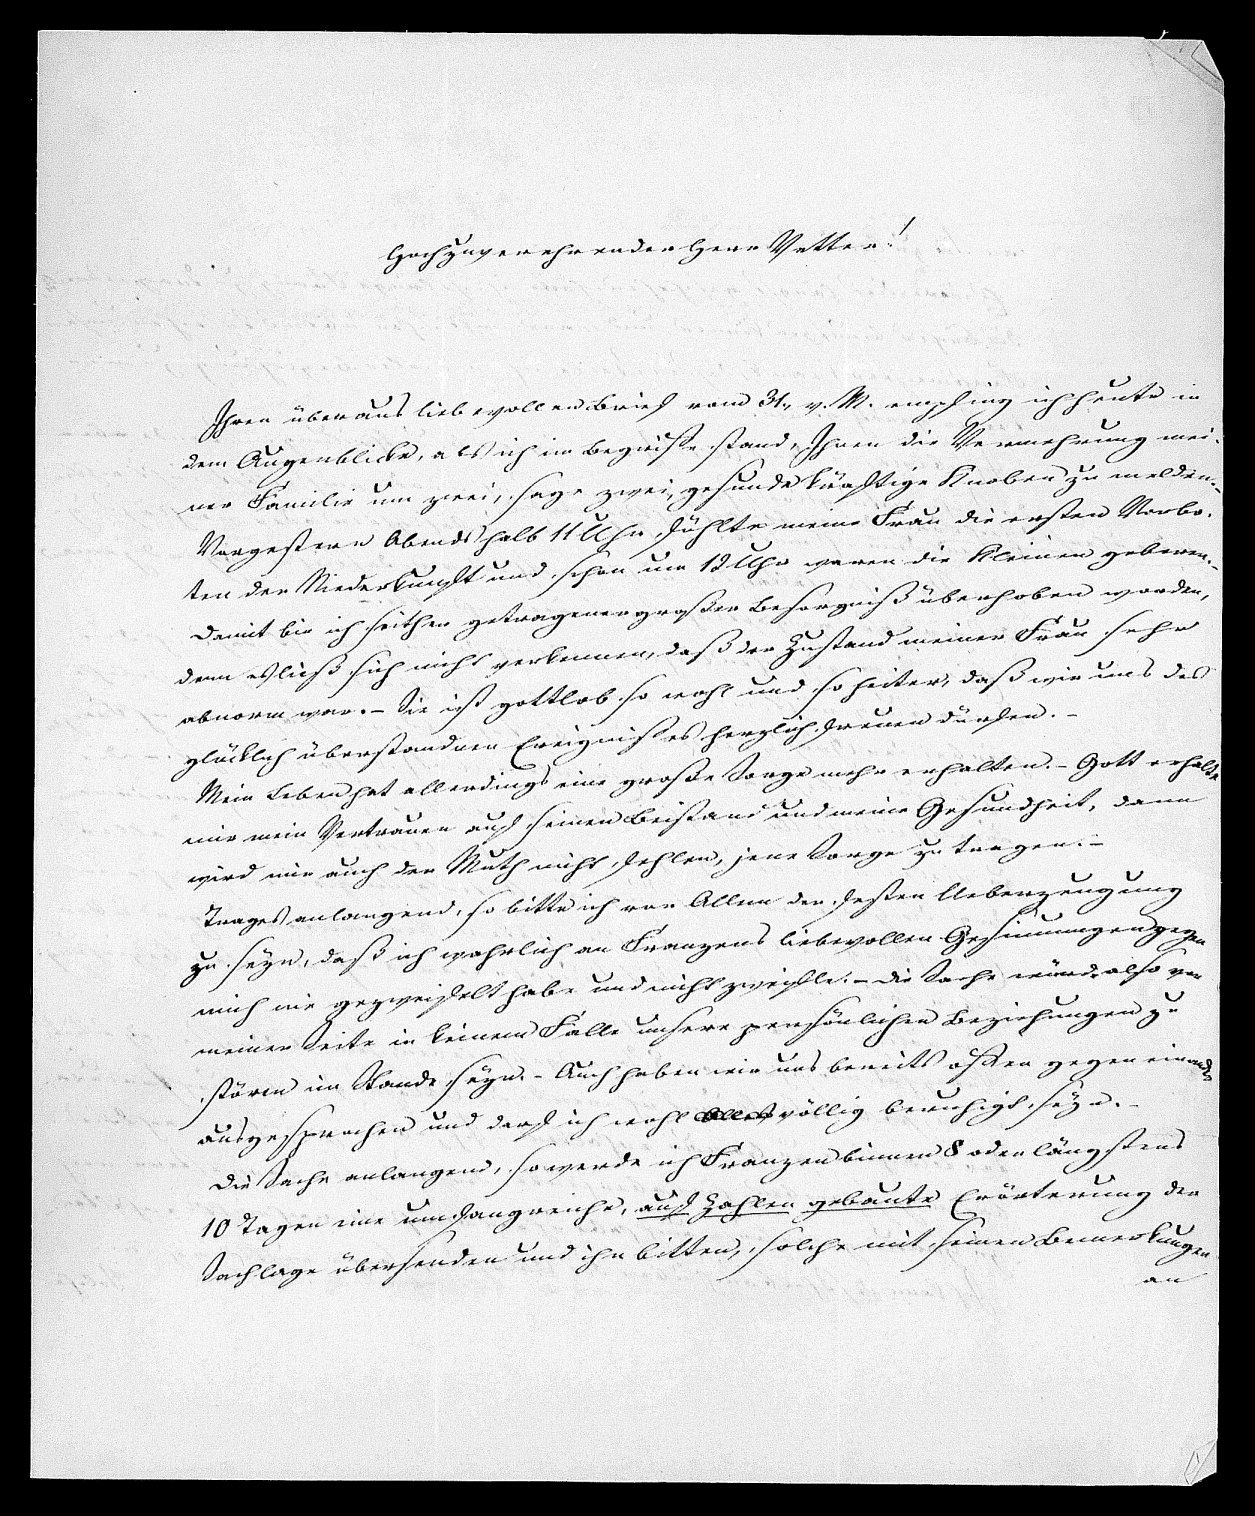 Hochzuverehrender Herr Vetter!
Ihren überaus liebevollen Brief vom 31. v. M. empfing ich heute in
dem Augenblicke, als ich im Begriffe stand, Ihnen die Vermehrung mei-
ner Familie um zwei, sage zwei, gesunde kräftige Knaben zu melden.-
Vorgestern Abends halb 11 Uhr, fühlte meine Frau die ersten Vorbo-
ten der Niederkunft und schon um 12 Uhr waren die Kleinen geboren.-
Damit bin ich seither getragener großer Besorgniß überhoben worden,
denn es ließ sich nicht verkennen, daß der Zustand meiner Frau sehr
abnorm war. - Sie ist gottlob so wohl und so heiter, daß wir uns des
glücklich überstandnen Ereignisses herzlich freuen dürfen. -
Mein Leben hat allerdings eine große Sorge mehr erhalten. - Gott erhalte
mir mein Vertrauen auf seinen Beistand und meine Gesundheit, dann
wird mir auch der Muth nicht fehlen, jene Sorge zu tragen. -
anlangend, so bitte ich vor Allem der festen Ueberzeugung
zu seyn, daß ich wahrlich an Franzens liebevollen Gesinnungen gegen
mich nie gezweifelt habe und nicht zweifle. - Die Sache würde also von
meiner Seite in keinem Falle unsere persönlichen Beziehungen zu
stören im Stande seyn. - Auch haben wir uns bereits offen gegen einander
ausgesprochen und darf ich wohl völlig beruhigt seyn. -
Die Sache anlangend, so werde ich Franzen binnen 8 oder längstens
10 Tagen eine umfangreiche, auf Zahlen gebaute Erörterung der
Sachlage übersenden und ihn bitten, solche mit seinen Bemerkungen
an